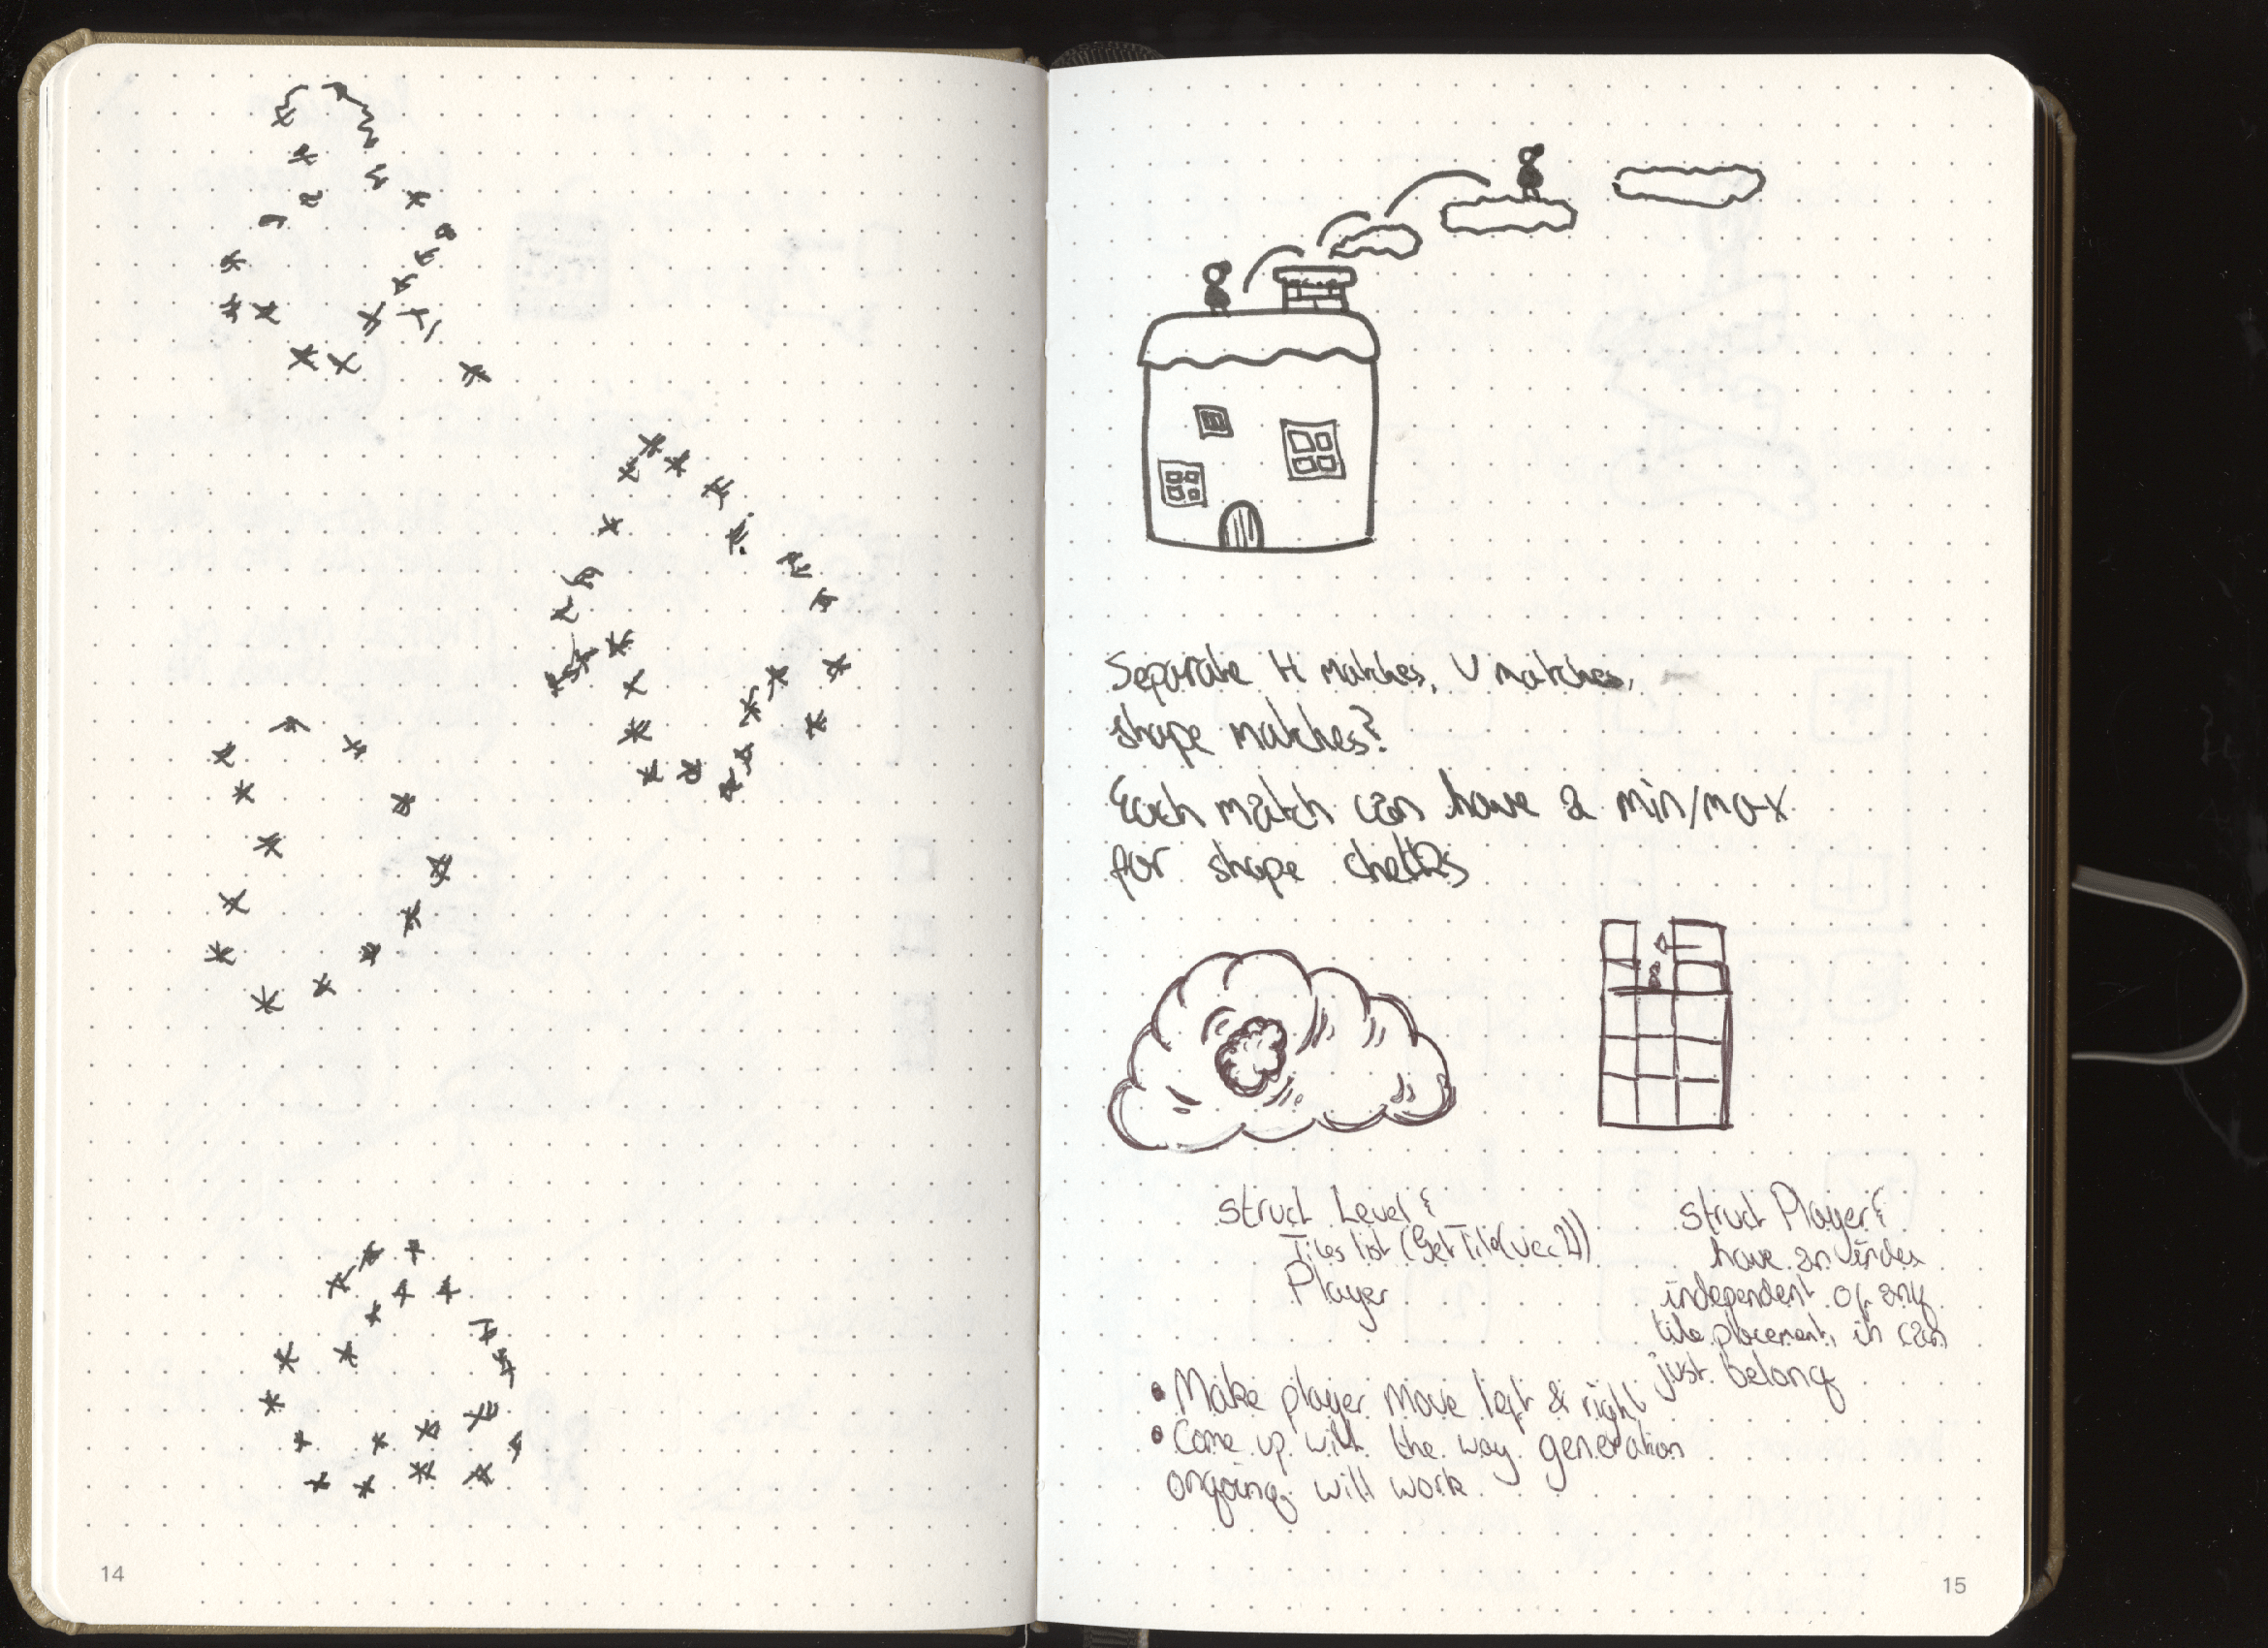 Separate H matches, V matches,
shape matches?
Each match can have a min/max
for shape checks
struct Level {
Tiles list (Get Tile(vec2))
Player
struct Player {
have an index
independent of any
tile placement, it can
just belong
• Make player move left & right
• Come up with the way generation
ongoing will work.
14
15